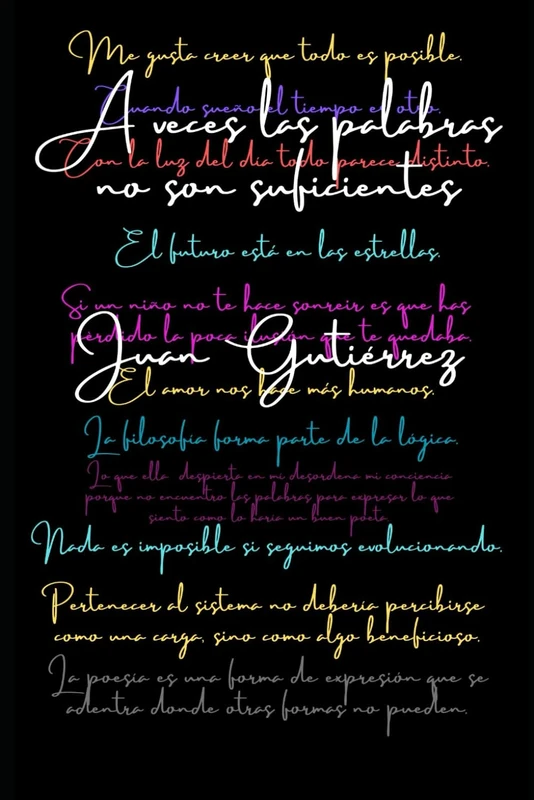 Me gusta creer que todo es posible.
Cuando sueño el tiempo es otro.
A veces las palabras
Con la luz del día todo parece distinto.
no son suficientes
El futuro está en las estrellas.
Si un niño no te hace sonreir es que has
pérdido la poca ilusión que te quedaba.
Juan Gutiérrez
El amor nos hace más humanos.
La filosofía forma parte de la lógica.
Lo que ella despierta en mi desordena mi conciencia
porque no encuentro las palabras para expresar lo que
siento como lo haría un buen poeta
Nada es imposible si seguimos evolucionando.
Pertenecer al sistema no debería percibirse
como una carga, sino como algo beneficioso.
La poesía es una forma de expresión que se
adentra donde otras formas no pueden.